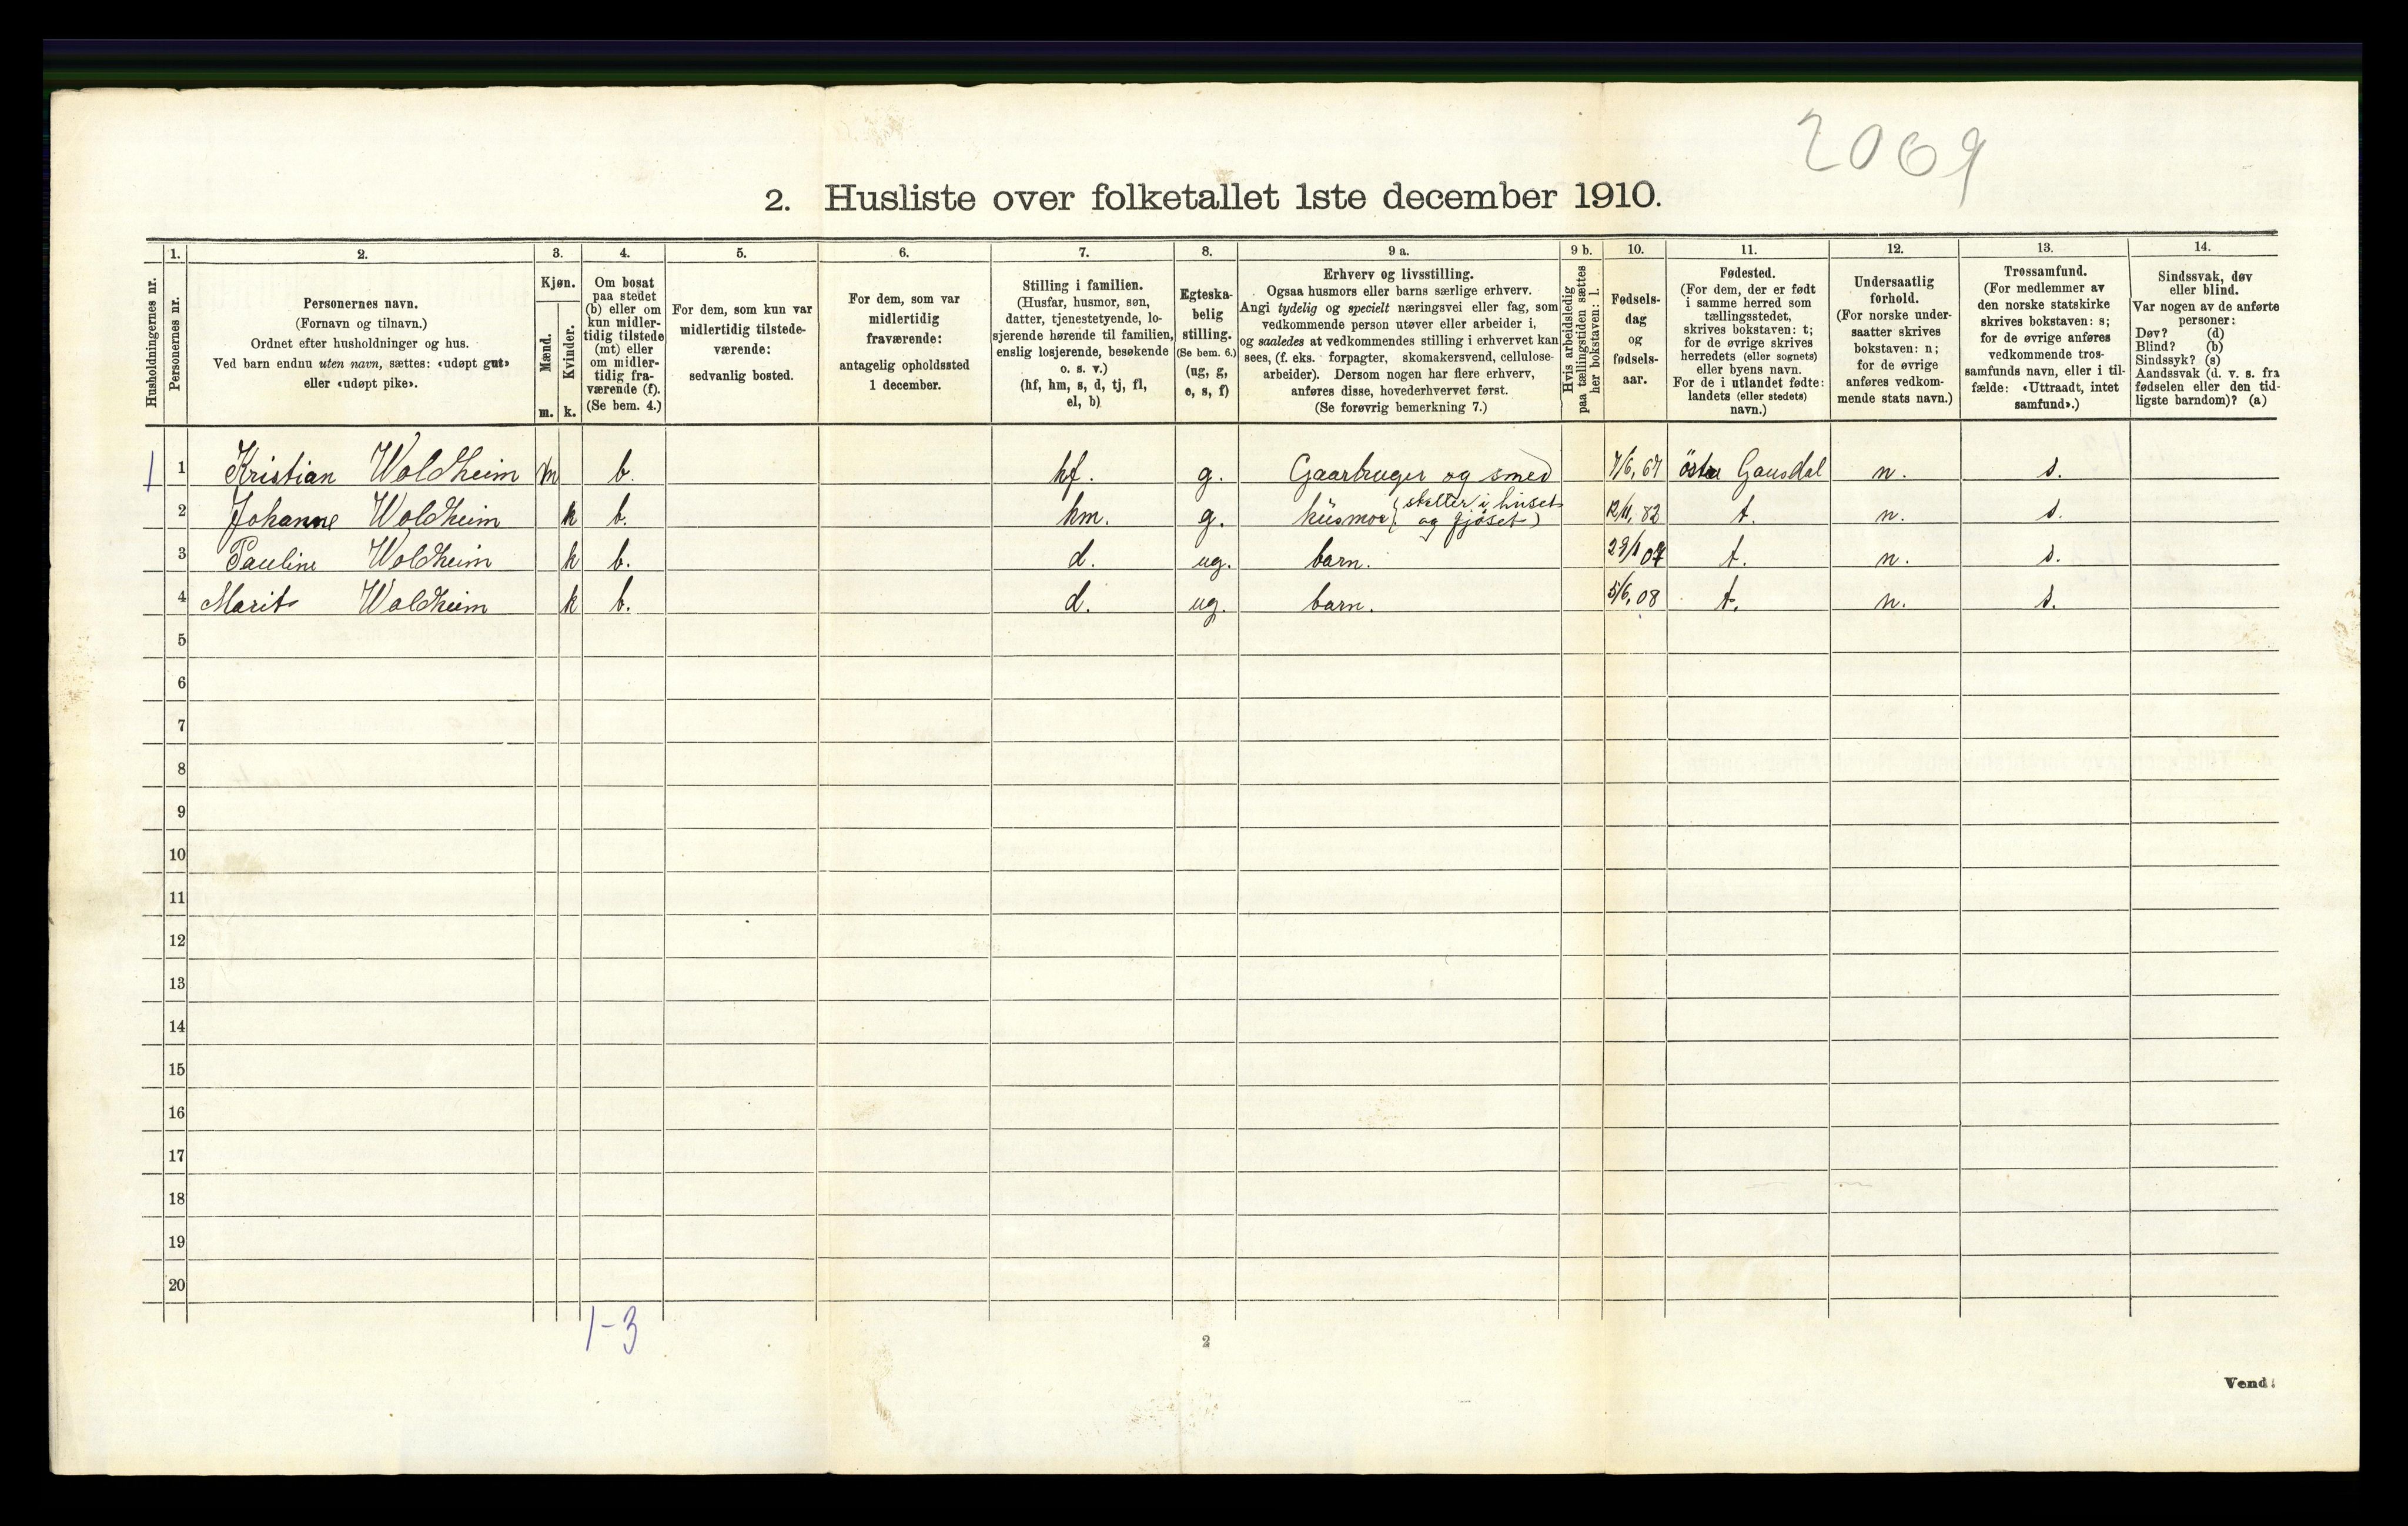 2069
2. Husliste over folketallet 1ste december 1910.
Husholdningernes nr.
1. Personernes nr.
2. Personernes navn.
(Fornavn og tilnavn.)
Ordnet efter husholdninger og hus.
Ved barn endnu uten navn, sættes: «udøpt gut»
eller «udøpt pike».
3. Kjøn.
Mænd. m.
Kvinder. k.
4. Om bosat
paa stedet
(b) eller om
kun midler-
tidig tilstede
(mt) eller
om midler-
tidig fra-
værende (f).
(Se bem. 4.)
5. For dem, som kun var
midlertidig tilstede-
værende:
sedvanlig bosted.
6. For dem, som var
midlertidig
fraværende:
antagelig opholdssted
1 december.
7. Stilling i familien.
(Husfar, husmor, søn,
datter, tjenestetyende, lo-
sjerende hørende til familien,
enslig losjerende, besøkende
o. s. v.)
(hf, hm, s, d, tj, fl,
el, b)
8. Egteska-
belig
stilling.
(Se bem. 6.)
(ug, g,
e, s, f)
9 a. Erhverv og livsstilling.
Ogsaa husmors eller barns særlige erhverv.
Angi tydelig og specielt næringsvei eller fag, som
vedkommende person utøver eller arbeider i,
og saaledes at vedkommendes stilling i erhvervet kan
sees, (f. eks. forpagter, skomakersvend, cellulose-
arbeider). Dersom nogen har flere erhverv,
anføres disse, hovederhvervet først.
(Se forøvrig bemerkning 7.)
9 b. Hvis arbeidsledig
paa tællingstiden sættes
her bokstaven: l.
10. Fødsels-
dag
og
fødsels-
aar.
11. Fødested.
(For dem, der er født
i samme herred som
tællingsstedet,
skrives bokstaven: t;
for de øvrige skrives
herredets (eller sognets)
eller byens navn.
For de i utlandet fødte:
landets (eller stedets)
navn.)
12. Undersaatlig
forhold.
(For norske under-
saatter skrives
bokstaven: n;
for de øvrige
anføres vedkom-
mende stats navn.)
13. Trossamfund.
(For medlemmer av
den norske statskirke
skrives bokstaven: s;
for de øvrige anføres
vedkommende tros-
samfunds navn, eller i til-
fælde: «Uttraadt, intet
samfund».)
14. Sindssvak, døv
eller blind.
Var nogen av de anførte
personer:
Døv? (d)
Blind? (b)
Sindssyk? (s)
Aandssvak (d. v. s. fra
fødselen eller den tid-
ligste barndom)? (a)
1 1 Kristian Woldheim m b. hf. g. Gaarbruger og smed 7/6, 67 östre Gausdal n. s.
2 Johanne Woldheim k b. hm. g. husmor (steller i huset og fjöset) 12/11, 82 t. n. s.
3 Pauline Woldheim k b. d. ug. barn. t. n. s.
4 Marit Woldheim k b. d. ug. barn. 5/6, 08 t. n. s.
5
6
7
8
9
10
11
12
13
14
15
16
17
18
19
20
1-3
2
Vend!